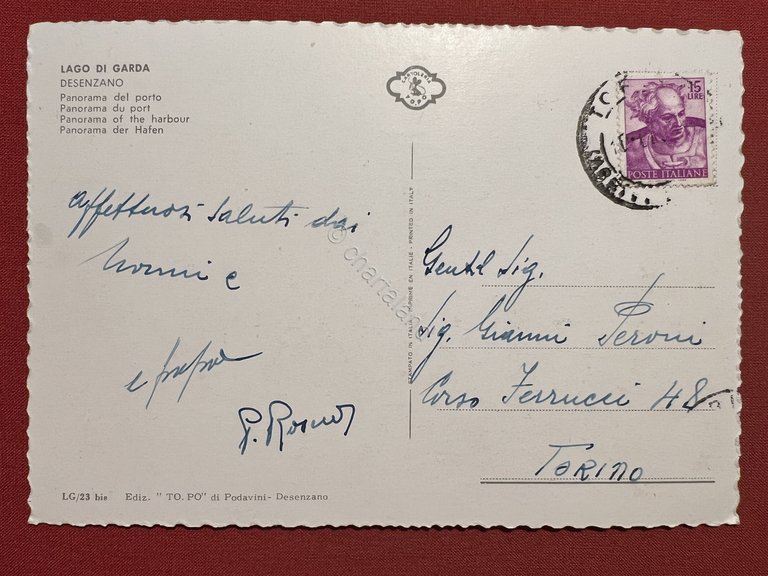 LAGO DI GARDA
DESENZANO
Panorama del porto
Panorama du port
Panorama of the harbour
Panorama der Hafen
CARTOLERIA
15
LIRE
POSTE ITALIANE
affettuosi saluti dai
nonni e
e papà
Gentil Sig.
Sig. Gianni Peroni
Corso Ferrucci 48
TORINO
STAMPATO IN ITALIA - IMPRIMÉ EN ITALIE - PRINTED IN ITALY
© chartaland
LG/23 bis Ediz. " TO. PO" di Podavini - Desenzano